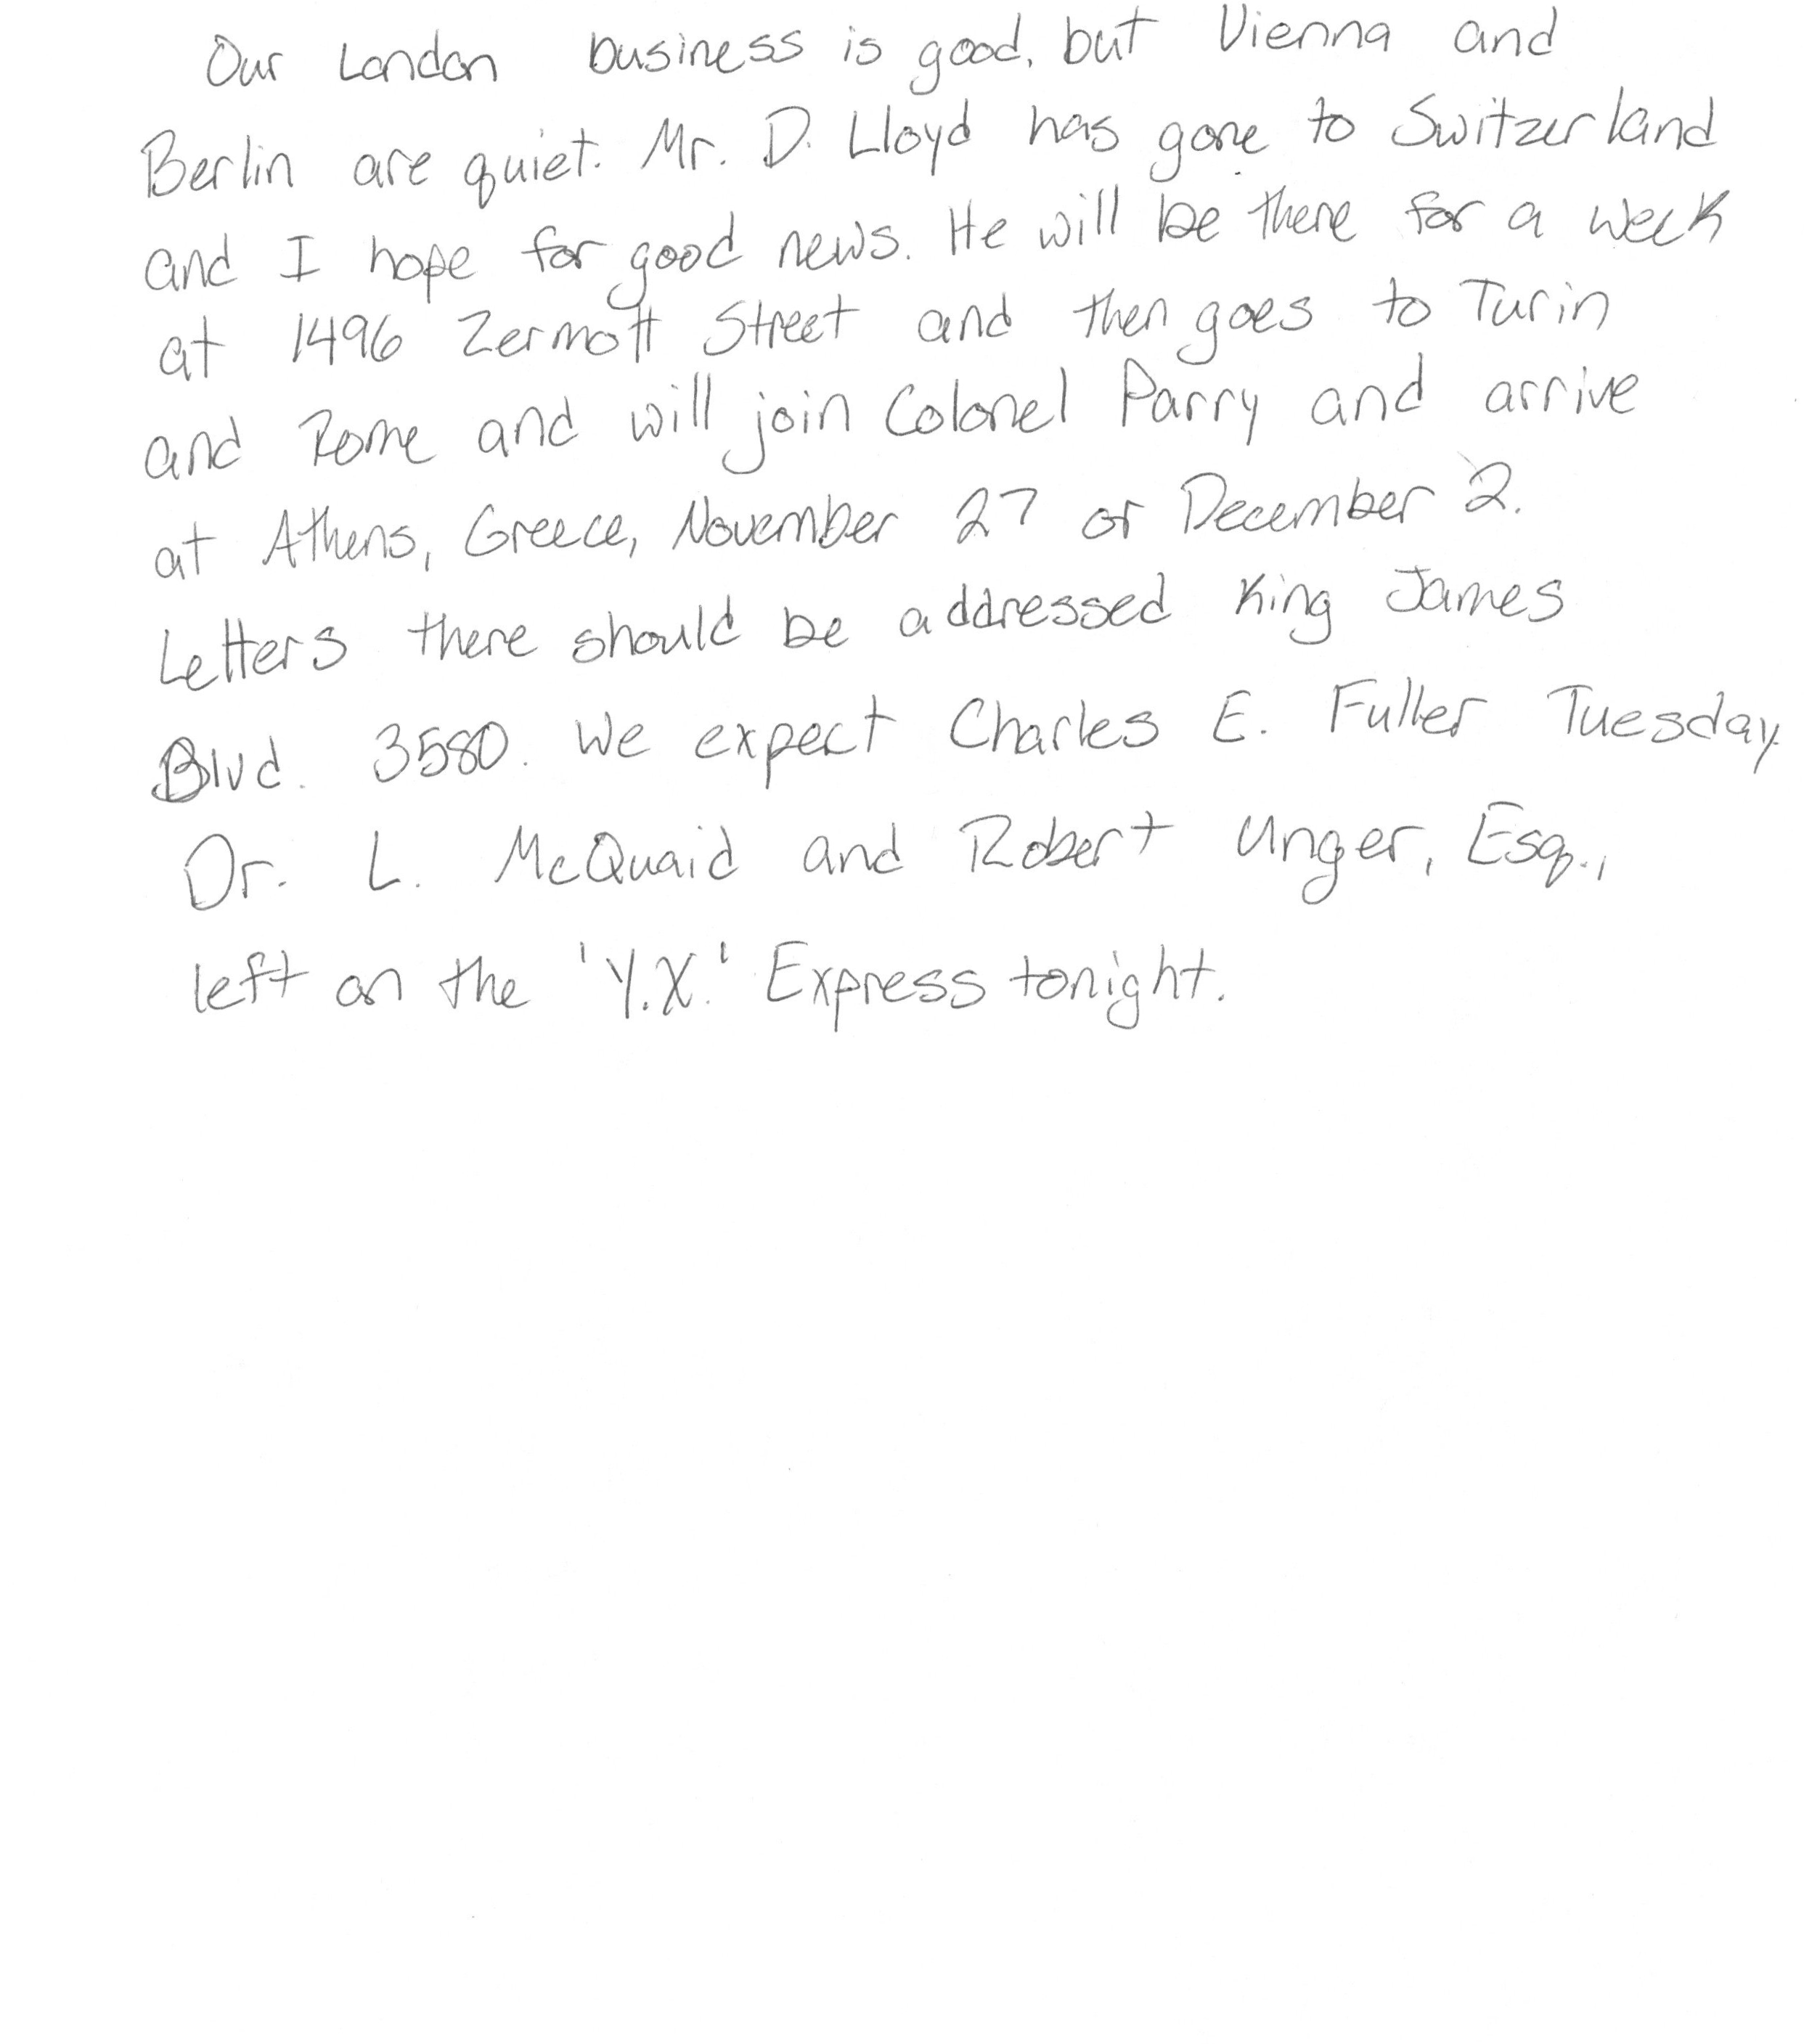 Our London business is good, but Vienna and
Berlin are quiet. Mr. D. Lloyd has gone to Switzerland
and I hope for good news. He will be there for a week
at 1496 Zermott Street and then goes to Turin
and Rome and will join Colonel Parry and arrive
at Athens, Greece, November 27 or December 2.
Letters there should be addressed King James
Blvd. 3580. We expect Charles E. Fuller Tuesday.
Dr. L. McQuaid and Robert Unger, Esq.,
left on the 'Y.X.' Express tonight.